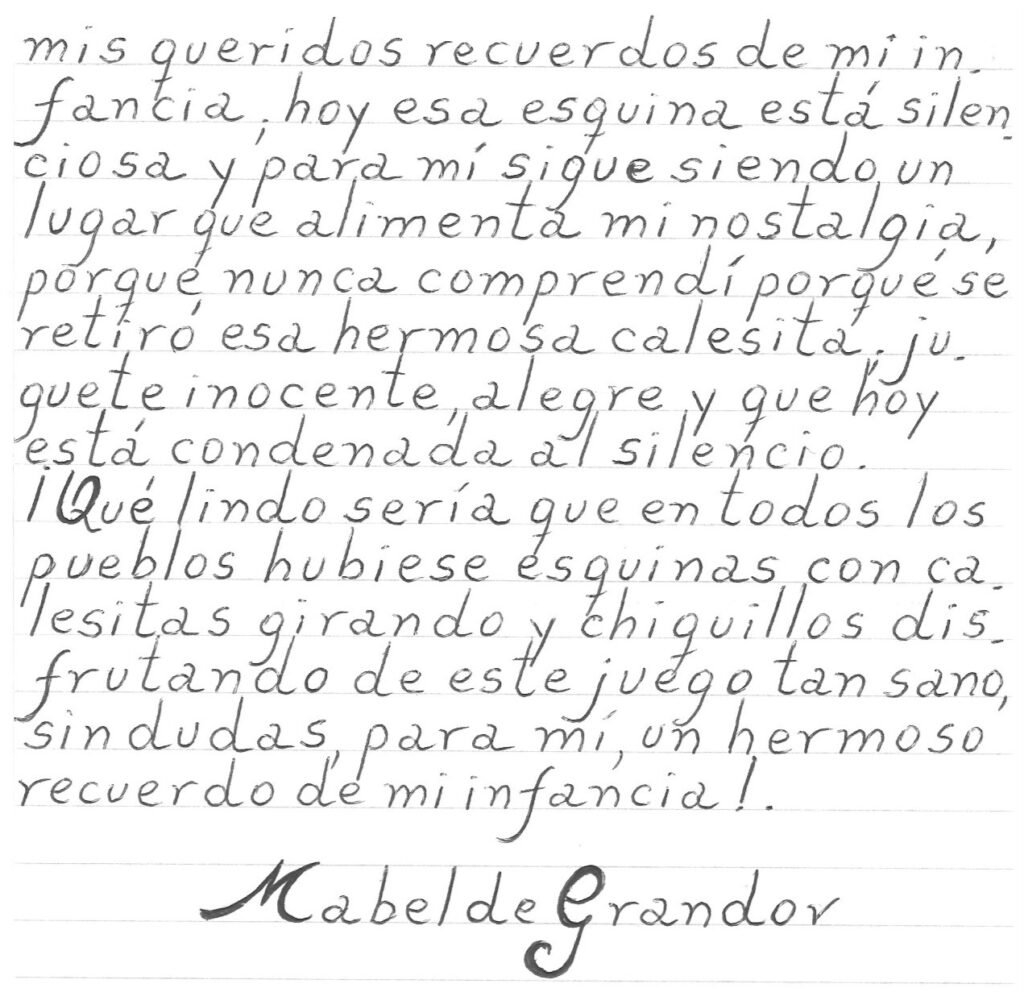 mis queridos recuerdos de mi in-
fancia, hoy esa esquina está silen-
ciosa y para mí sigue siendo un
lugar que alimenta mi nostalgia,
porqué nunca comprendí porqué se
retiró esa hermosa calesita, ju-
guete inocente, alegre y que hoy
está condenada al silencio.
¡Qué lindo sería que en todos los
pueblos hubiese esquinas con ca-
lesitas girando y chiquillos dis-
frutando de este juego tan sano,
sin dudas, para mí, un hermoso
recuerdo de mi infancia!.
Mabel de Grandov